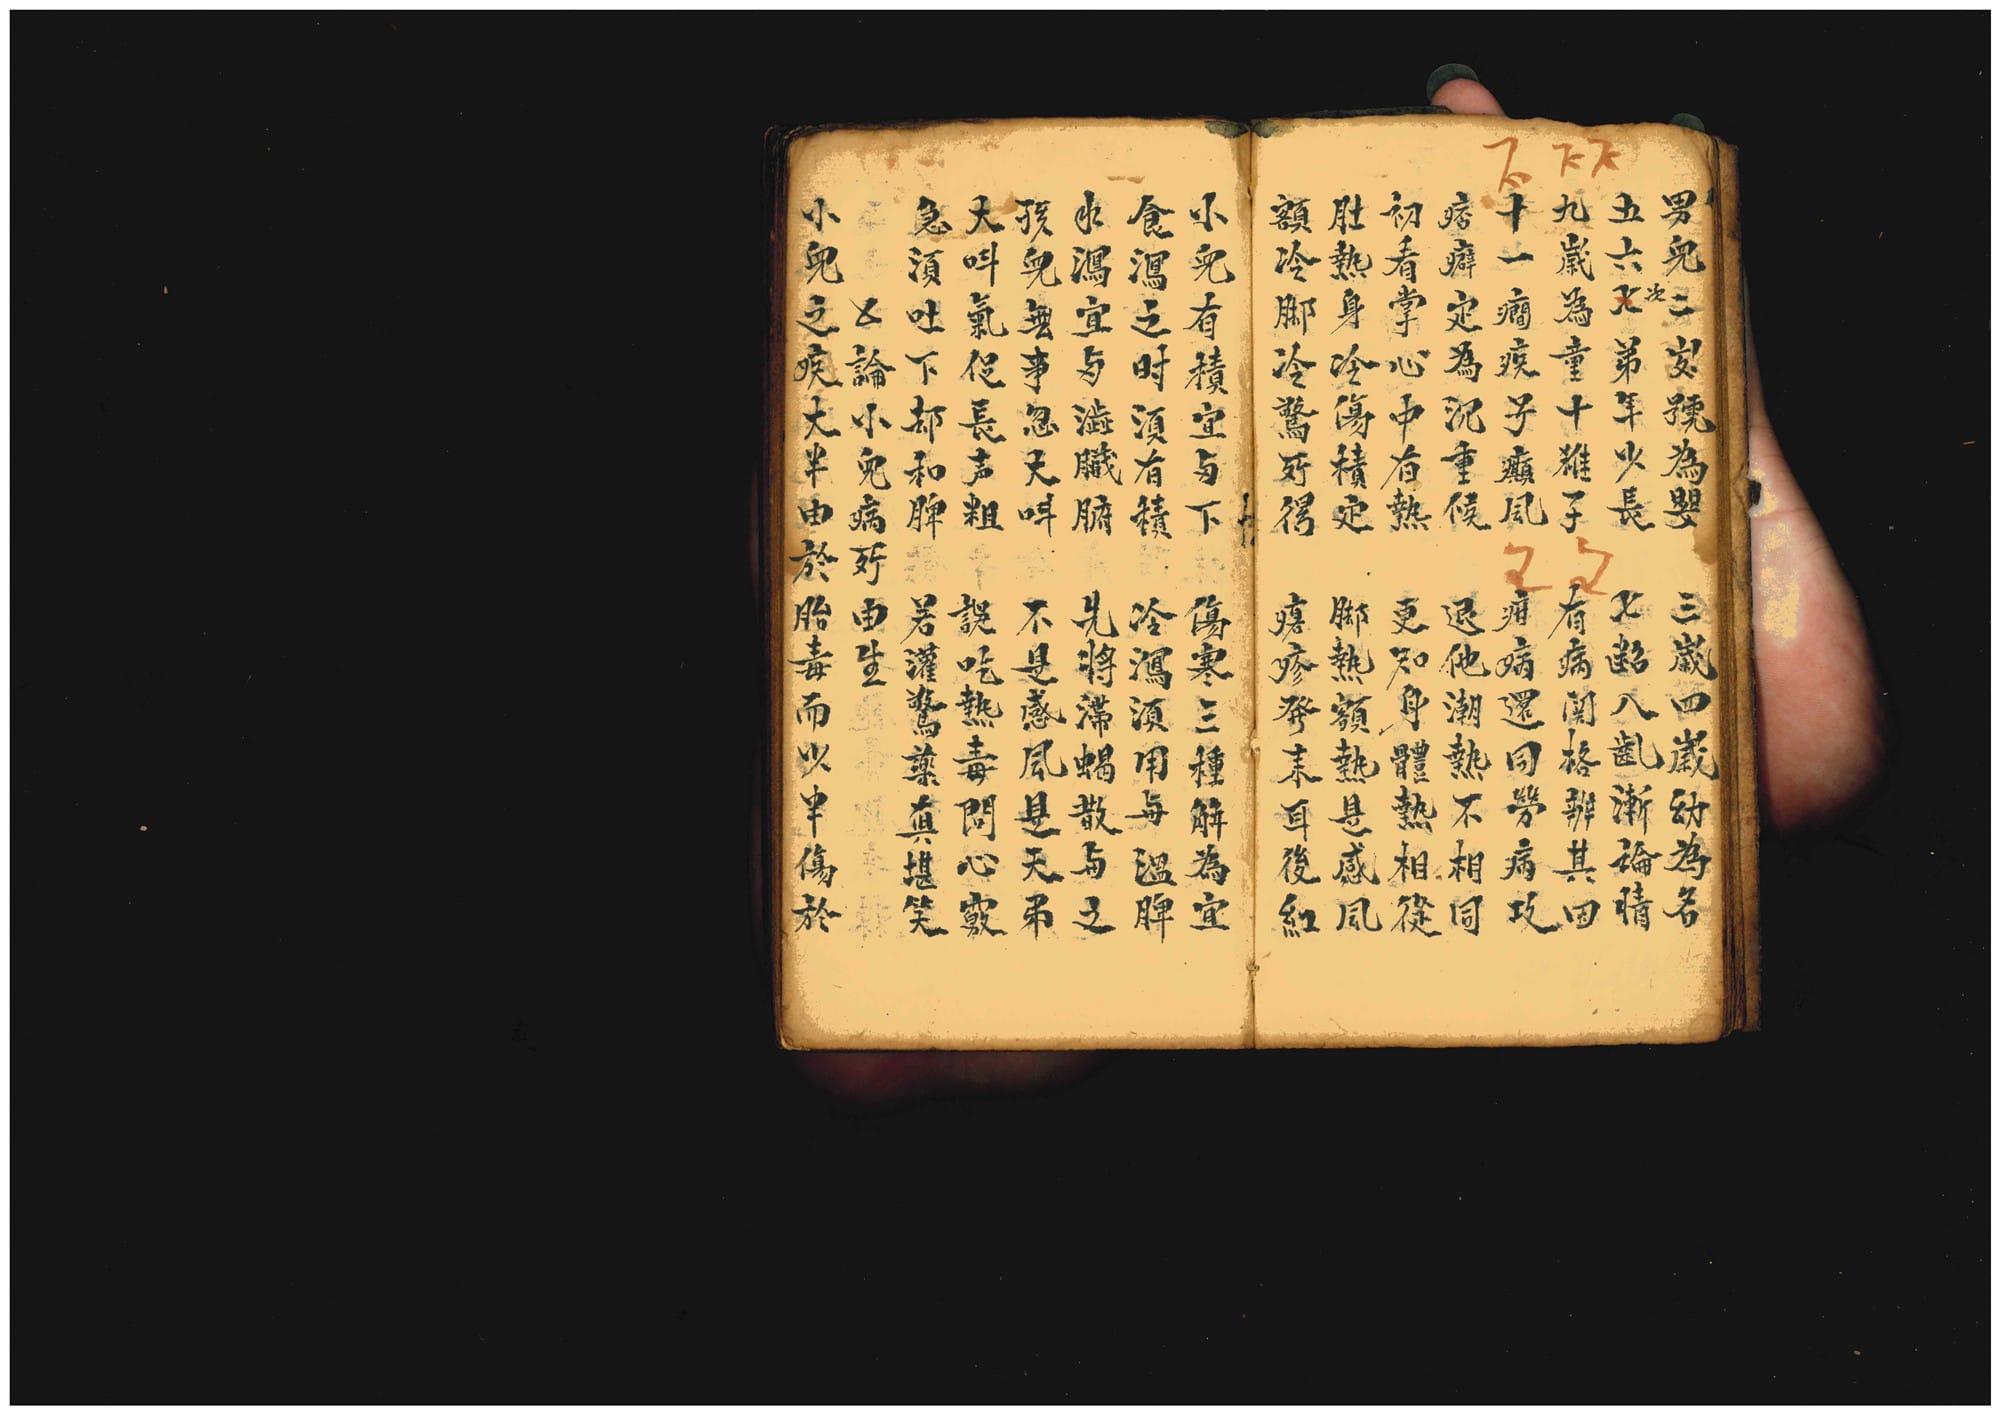 男兒二歲號為嬰 三歲四歲幼為名
五六次七第年少長 七齠八齔漸論情
九歲為童十雉子 有病関格辨其因
十一癇疾子癲風 疳病還同勞病攻
痞癖定為沉重候 退他潮熱不相同
初看掌心中有熱 更知身體熱相從
肚熱身冷傷積定 脚熱額熱是感風
額冷脚冷驚所得 瘡疹發来耳後紅
小兒有積宜与下 傷寒三種解為宜
食瀉之时湏有積 冷瀉湏用与溫脾
水瀉宜与澁臟腑 先將滯蝎散与之
孩兒無事忽大呌 不是感風是天弔
大呌氣促長声粗 誤吃熱毒問心竅
急湏吐下却和脾 若灌驚藥真堪笑
乙論小兒病所由生
小兒之疾大半由於胎毒而少半傷於